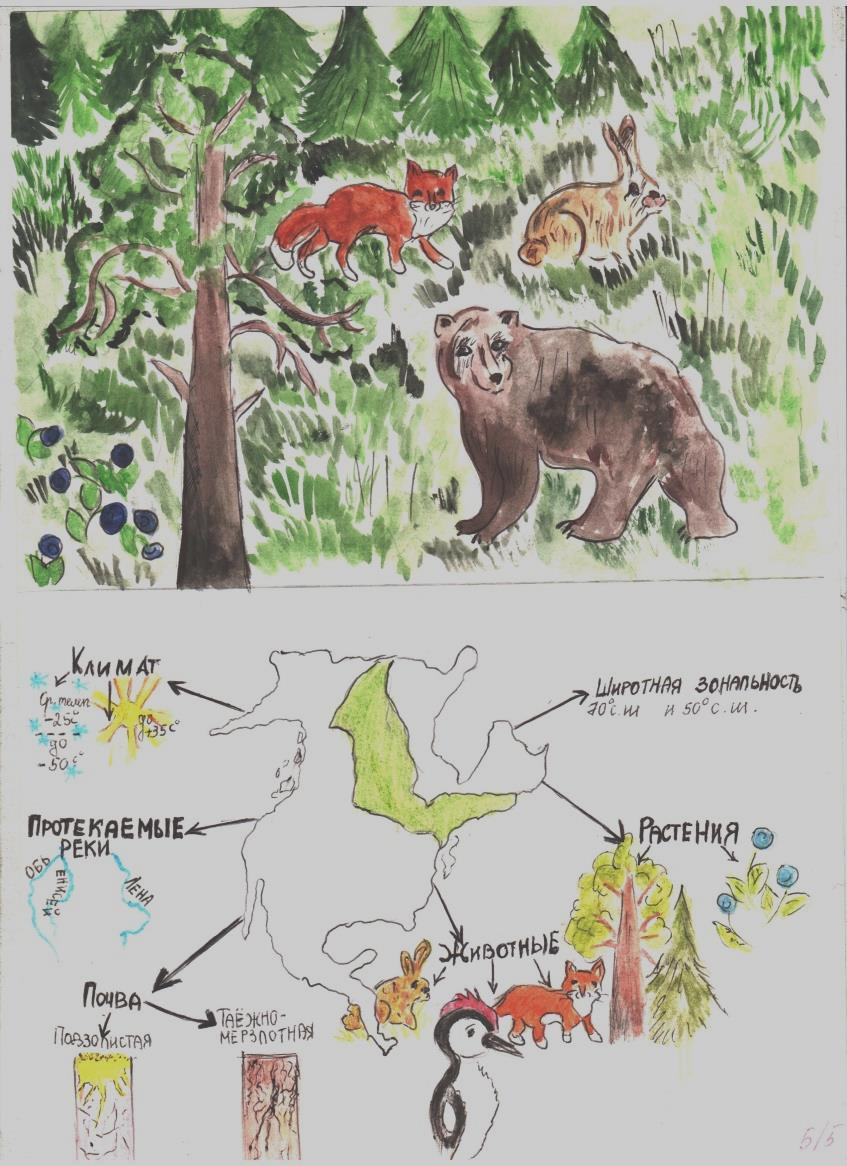 Климат
Ср. темп
-25С°
до
-50С°
до
+35С°
Широтная зональность
70°с.ш и 50°с.ш.
Протекаемые
реки
Обь
Енисей
Лена
Растения
Животные
Почва
Подзолистая
Таёжно-
мерзлотная
5/5